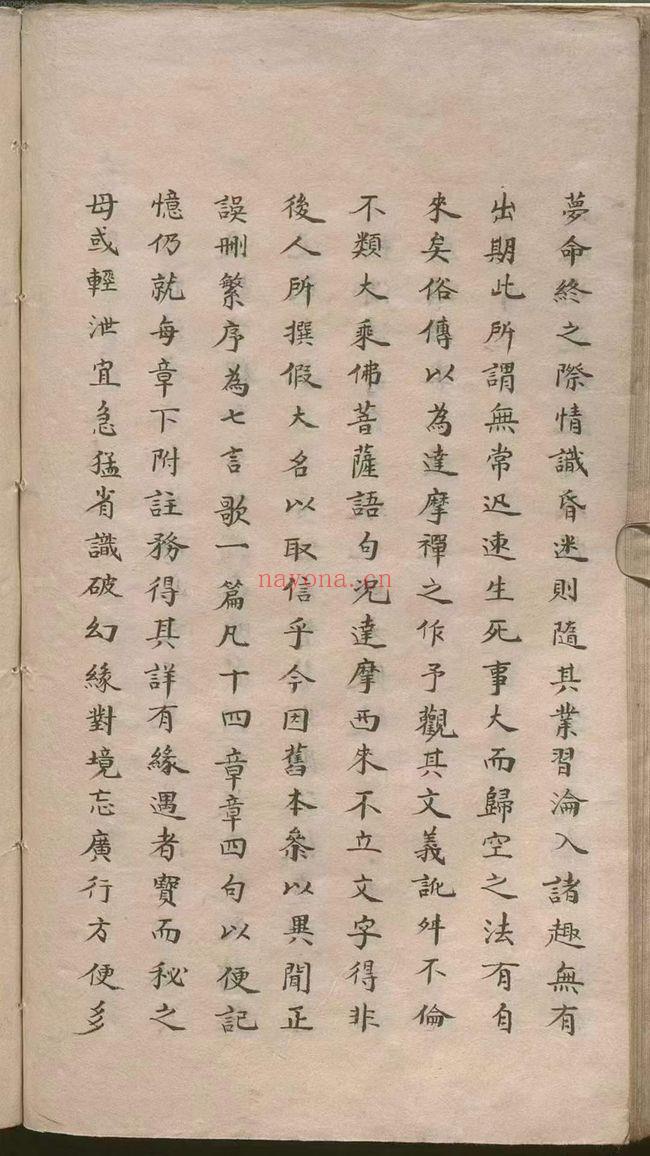 夢命終之際情識昏迷則隨其業習淪入諸趣無有
出期此所謂無常迅速生死事大而歸空之法有自
來矣俗傳以為達摩禪之作予觀其文義訛舛不倫
不類大乘佛菩薩語句況達摩西來不立文字得非
後人所撰假大名以取信乎今因舊本叅以異聞正
誤刪繁序為七言歌一篇凡十四章章四句以便記
憶仍就每章下附註務得其詳有緣遇者寶而秘之
母或輕泄宜急猛省識破幻緣對境忘廣行方便多
nayona.cn